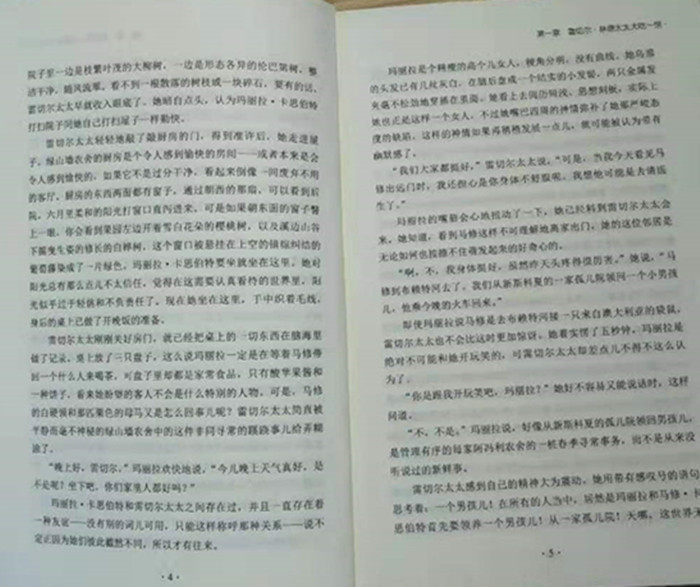 院子里一边是枝繁叶茂的大柳树,一边是形态各异的伦巴第树,整
洁干净,随风流翠,看不到一根散落的树枝或一块碎石,要有的话,
雷切尔太太早就收入眼底了。她暗自点头,认为玛丽拉·卡思伯特
打扫院子同她自己打扫屋子一样勤快。
雷切尔太太轻轻地敲了敲厨房的门,得到准许后,她走进屋
子。绿山墙农舍的厨房是个令人感到愉快的房间——或者本来是会
令人感到愉快的,如果它不是过分干净,看起来倒像一间废弃不用
的客厅。厨房的东西两面都有窗子,通过朝西的那扇,可以看到后
院,六月里柔和的阳光打窗口直泻进来,可是如果朝东面的窗子瞥
上一眼,你会看见果园左边开着雪白花朵的樱桃树,以及溪边山谷
下摇曳生姿的修长的白桦树,这个窗口被悬挂在上空的错综纠结的
葡萄藤染成了一片绿色。玛丽拉·卡思伯特要坐就坐在这里,她对
阳光总有那么点儿不太信任,觉得在这需要认真看待的世界里,阳
光似乎过于轻佻和不负责任了。现在她坐在这里,手中织着毛线,
身后的桌上已做了开晚饭的准备。
雷切尔太太刚刚关好房门,就已经把桌上的一切东西在脑海里
做了记录。桌上放了三只盘子,这么说玛丽拉一定是在等着马修带
回一个什么人来喝茶,可盘子里却都是家常食品,只有酸苹果酱和
一种饼子,看来她盼望的客人不会是什么特别的人物。可是,马修
的白硬领和那匹栗色的母马又是怎么回事儿呢?雷切尔太太简直被
平静而毫不神秘的绿山墙农舍中的这件非同寻常的蹊跷事儿给弄糊
涂了。
“晚上好,雷切尔。”玛丽拉欢快地说,“今儿晚上天气真好,是
不是呢?坐下吧,你们家里人都好吗?”
玛丽拉·卡思伯特和雷切尔太太之间存在过,并且一直存在着
一种友谊——没有别的词儿可用,只能这样称呼那种关系——说不
定正因为她们彼此截然不同,所以才有往来。
·4·
第一章 雷切尔·林德太太大吃一惊
玛丽拉是个精瘦的高个儿女人,棱角分明,没有曲线。她乌黑
的头发已有几丝灰白,在脑后盘成一个结实的小发髻,两只金属发
夹毫不松劲地穿插在里面。她看上去阅历浅,思想刻板,实际上
她也正是这样一个女人,不过她嘴巴四周的神情弥补了她那严峻态
度的缺陷,这样的神情如果再稍稍发展一点儿,就可能被认为带有
幽默感了。
“我们大家都挺好。”雷切尔太太说,“可是,当我今天看见马
修出远门时,我还担心是你身体不舒服呢。我想他可能是去请医
生了。”
玛丽拉的嘴唇会心地扭动了一下,她已经料到雷切尔太太会
来。她知道,看到马修这样不可理解地离家出门,她的这位邻居是
无论如何也按捺不住萌发起来的好奇心的。
“啊,不,我身体挺好,虽然昨天头疼得很厉害。”她说,“马
修到布赖特河去了。我们从新斯科夏的一家孤儿院领回一个小男孩
儿,他乘今晚的火车回来。”
即使玛丽拉说马修是去布赖特河接一只来自澳大利亚的袋鼠,
雷切尔太太也不会比这时更加惊讶。她着实愣了五秒钟。玛丽拉是
绝对不可能和她开玩笑的,可雷切尔太太却差点儿不得不这么认
为了。
“你是跟我开玩笑吧,玛丽拉?”她好不容易又能说话时,这样
问道。
“不,不是。”玛丽拉说,好像从新斯科夏的孤儿院领回男孩儿,
是管理有序的每家阿冯利农舍的一桩春季寻常事务,而不是从来没
听说过的新鲜事。
雷切尔太太感到自己的精神大为震动。她用带有感叹号的语句
思考着:一个男孩儿!在所有的人当中,居然是玛丽拉和马修·卡
思伯特首先要领养一个男孩儿!从一家孤儿院!天哪,这世界无
·5·